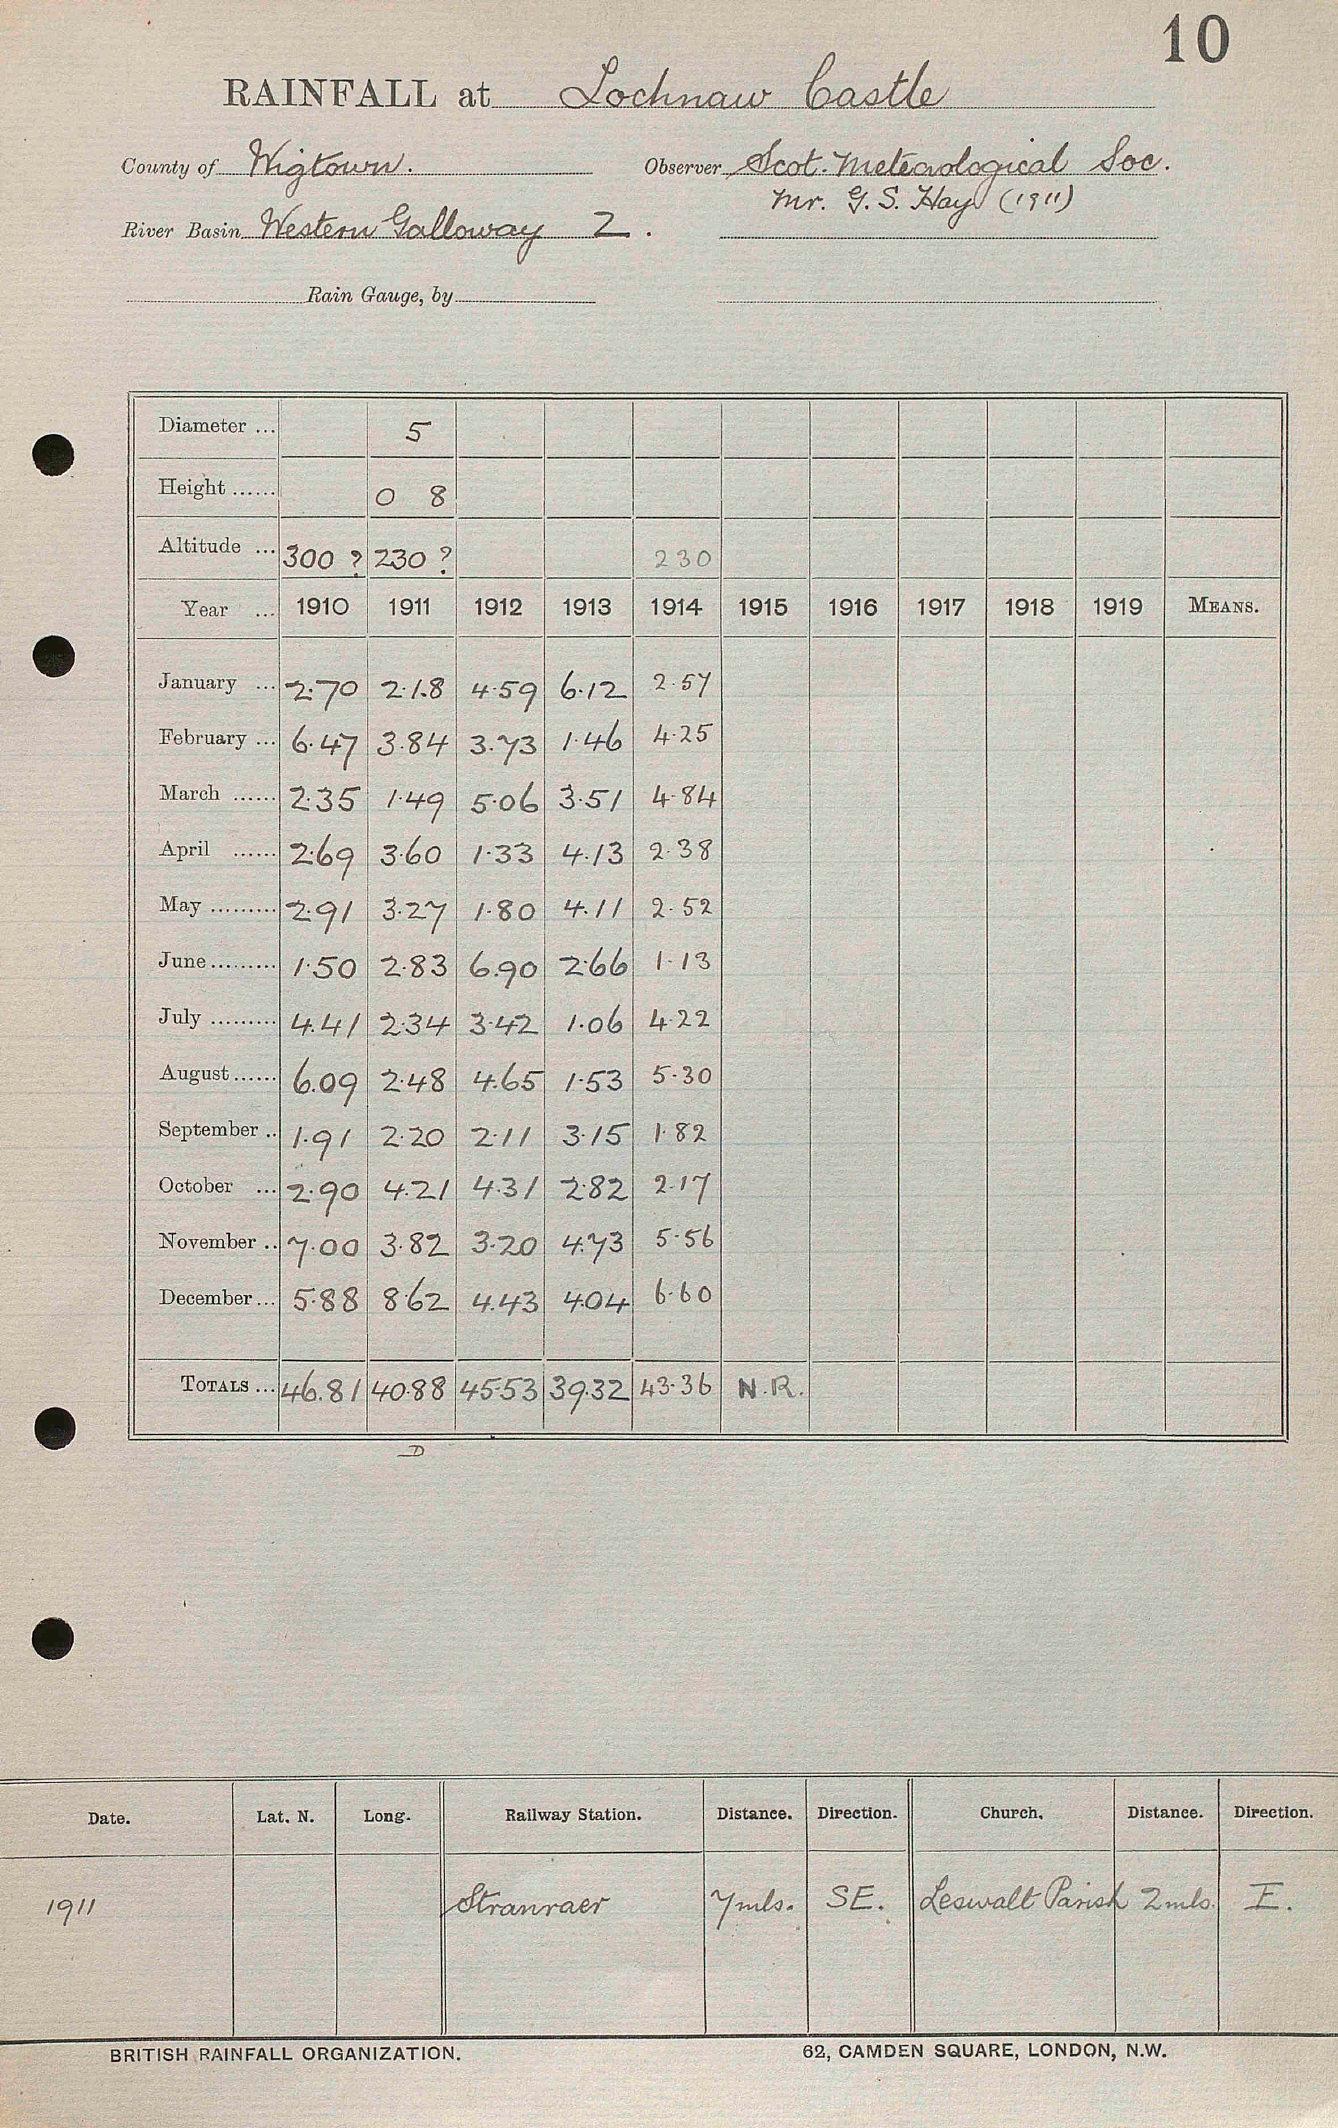 10
RAINFALL at Lochnaw Castle
County of Wigtown. Observer Scot. Meteorological Soc.
Mr. G. S. Hay (1911)
River Basin Western Galloway 2.
Rain Gauge, by
Diameter ... 5
Height ...... 0 8
Altitude ... 300 ? 230 ? 230
Year ... 1910 1911 1912 1913 1914 1915 1916 1917 1918 1919 MEANS.
January ... 2.70 2.18 4.59 6.12 2.57
February ... 6.47 3.84 3.73 1.46 4.25
March ...... 2.35 1.49 5.06 3.51 4.84
April ...... 2.69 3.60 1.33 4.13 2.38
May ......... 2.91 3.27 1.80 4.11 2.52
June ......... 1.50 2.83 6.90 2.66 1.13
July ......... 4.41 2.34 3.42 1.06 4.22
August ...... 6.09 2.48 4.65 1.53 5.30
September .. 1.91 2.20 2.11 3.15 1.82
October ... 2.90 4.21 4.31 2.82 2.17
November .. 7.00 3.82 3.20 4.73 5.56
December ... 5.88 8.62 4.43 4.04 6.60
TOTALS ... 46.81 40.88 45.53 39.32 43.36 N.R.
D
Date. Lat. N. Long. Railway Station. Distance. Direction. Church. Distance. Direction.
1911 Stranraer 7 mls. SE. Leswalt Parish 2 mls. E.
BRITISH RAINFALL ORGANIZATION. 62, CAMDEN SQUARE, LONDON, N.W.